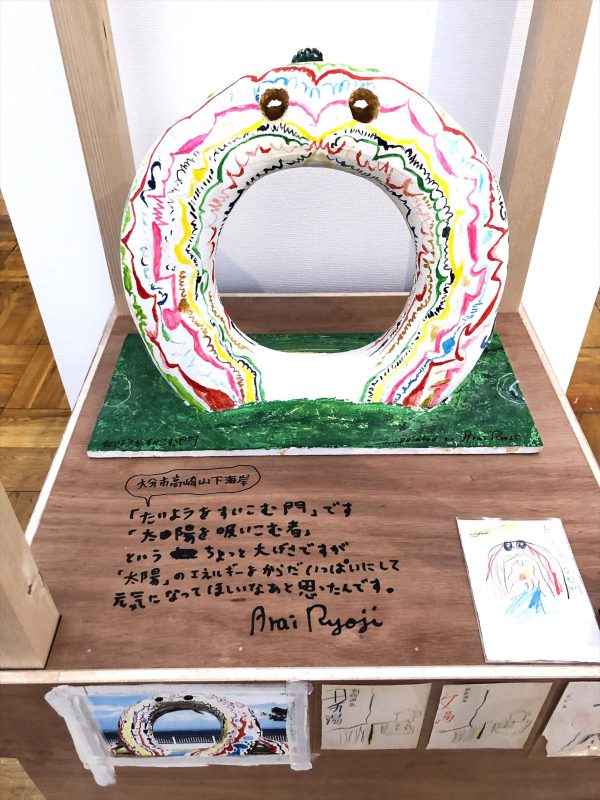 たいようをすいこむ門
painted by Arai Ryoji
大分市高崎山下海岸
「たいようをすいこむ門」です
「太陽を吸いこむ者」
という ちょっと大げさですが
「太陽」のエネルギーをからだいっぱいにして
元気になってほしいなあと思ったんです。
Arai Ryoji
湯
湯